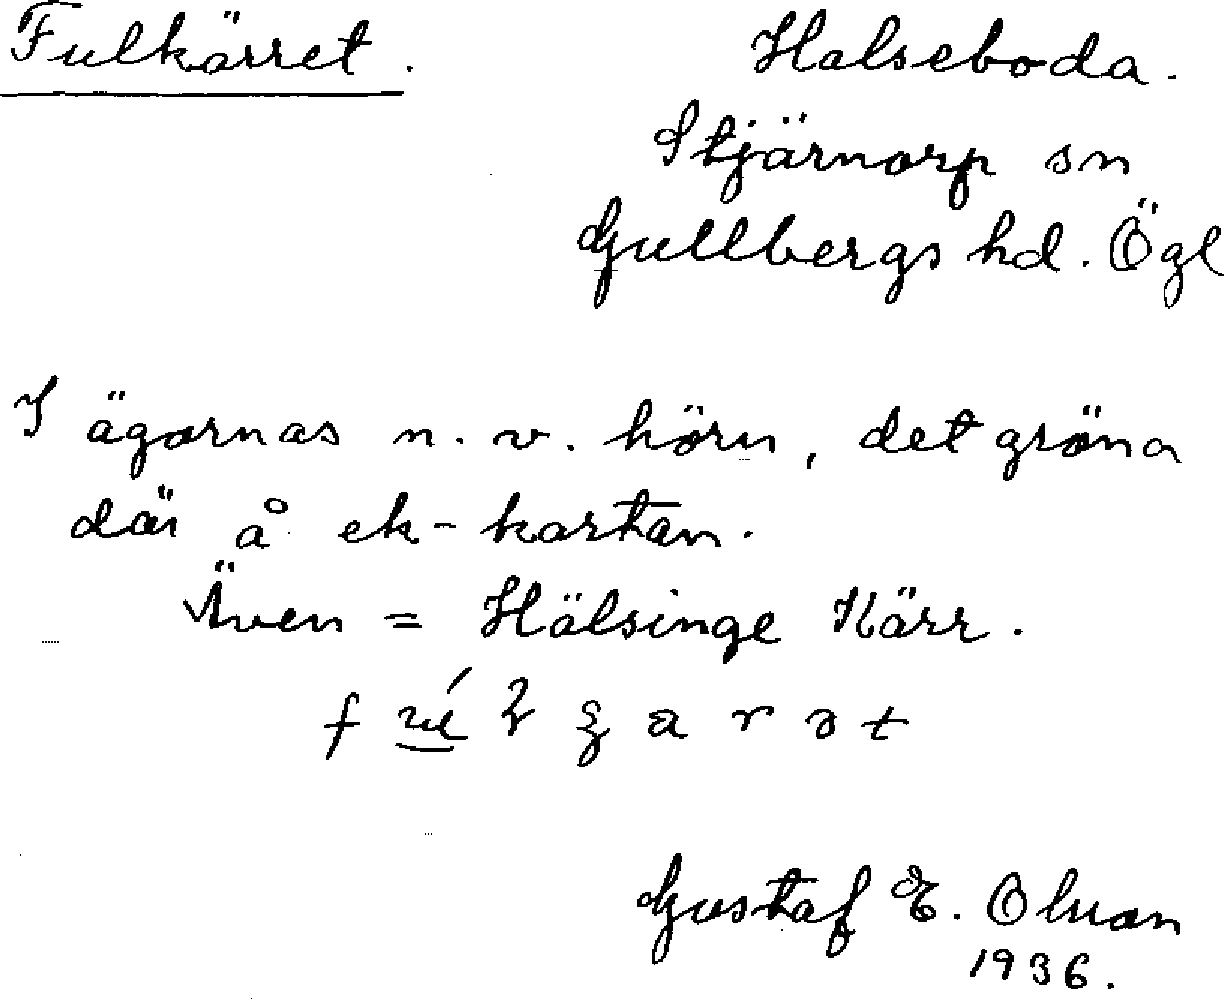 Fulkärret. Halseboda.
Stjärnorp sn
Gullbergs hd. Ögl
I ägornas n. v. hörn, det gröna
där å ek-kartan.
Även = Hälsinge Kärr.
Gustaf E. Olson
1936.